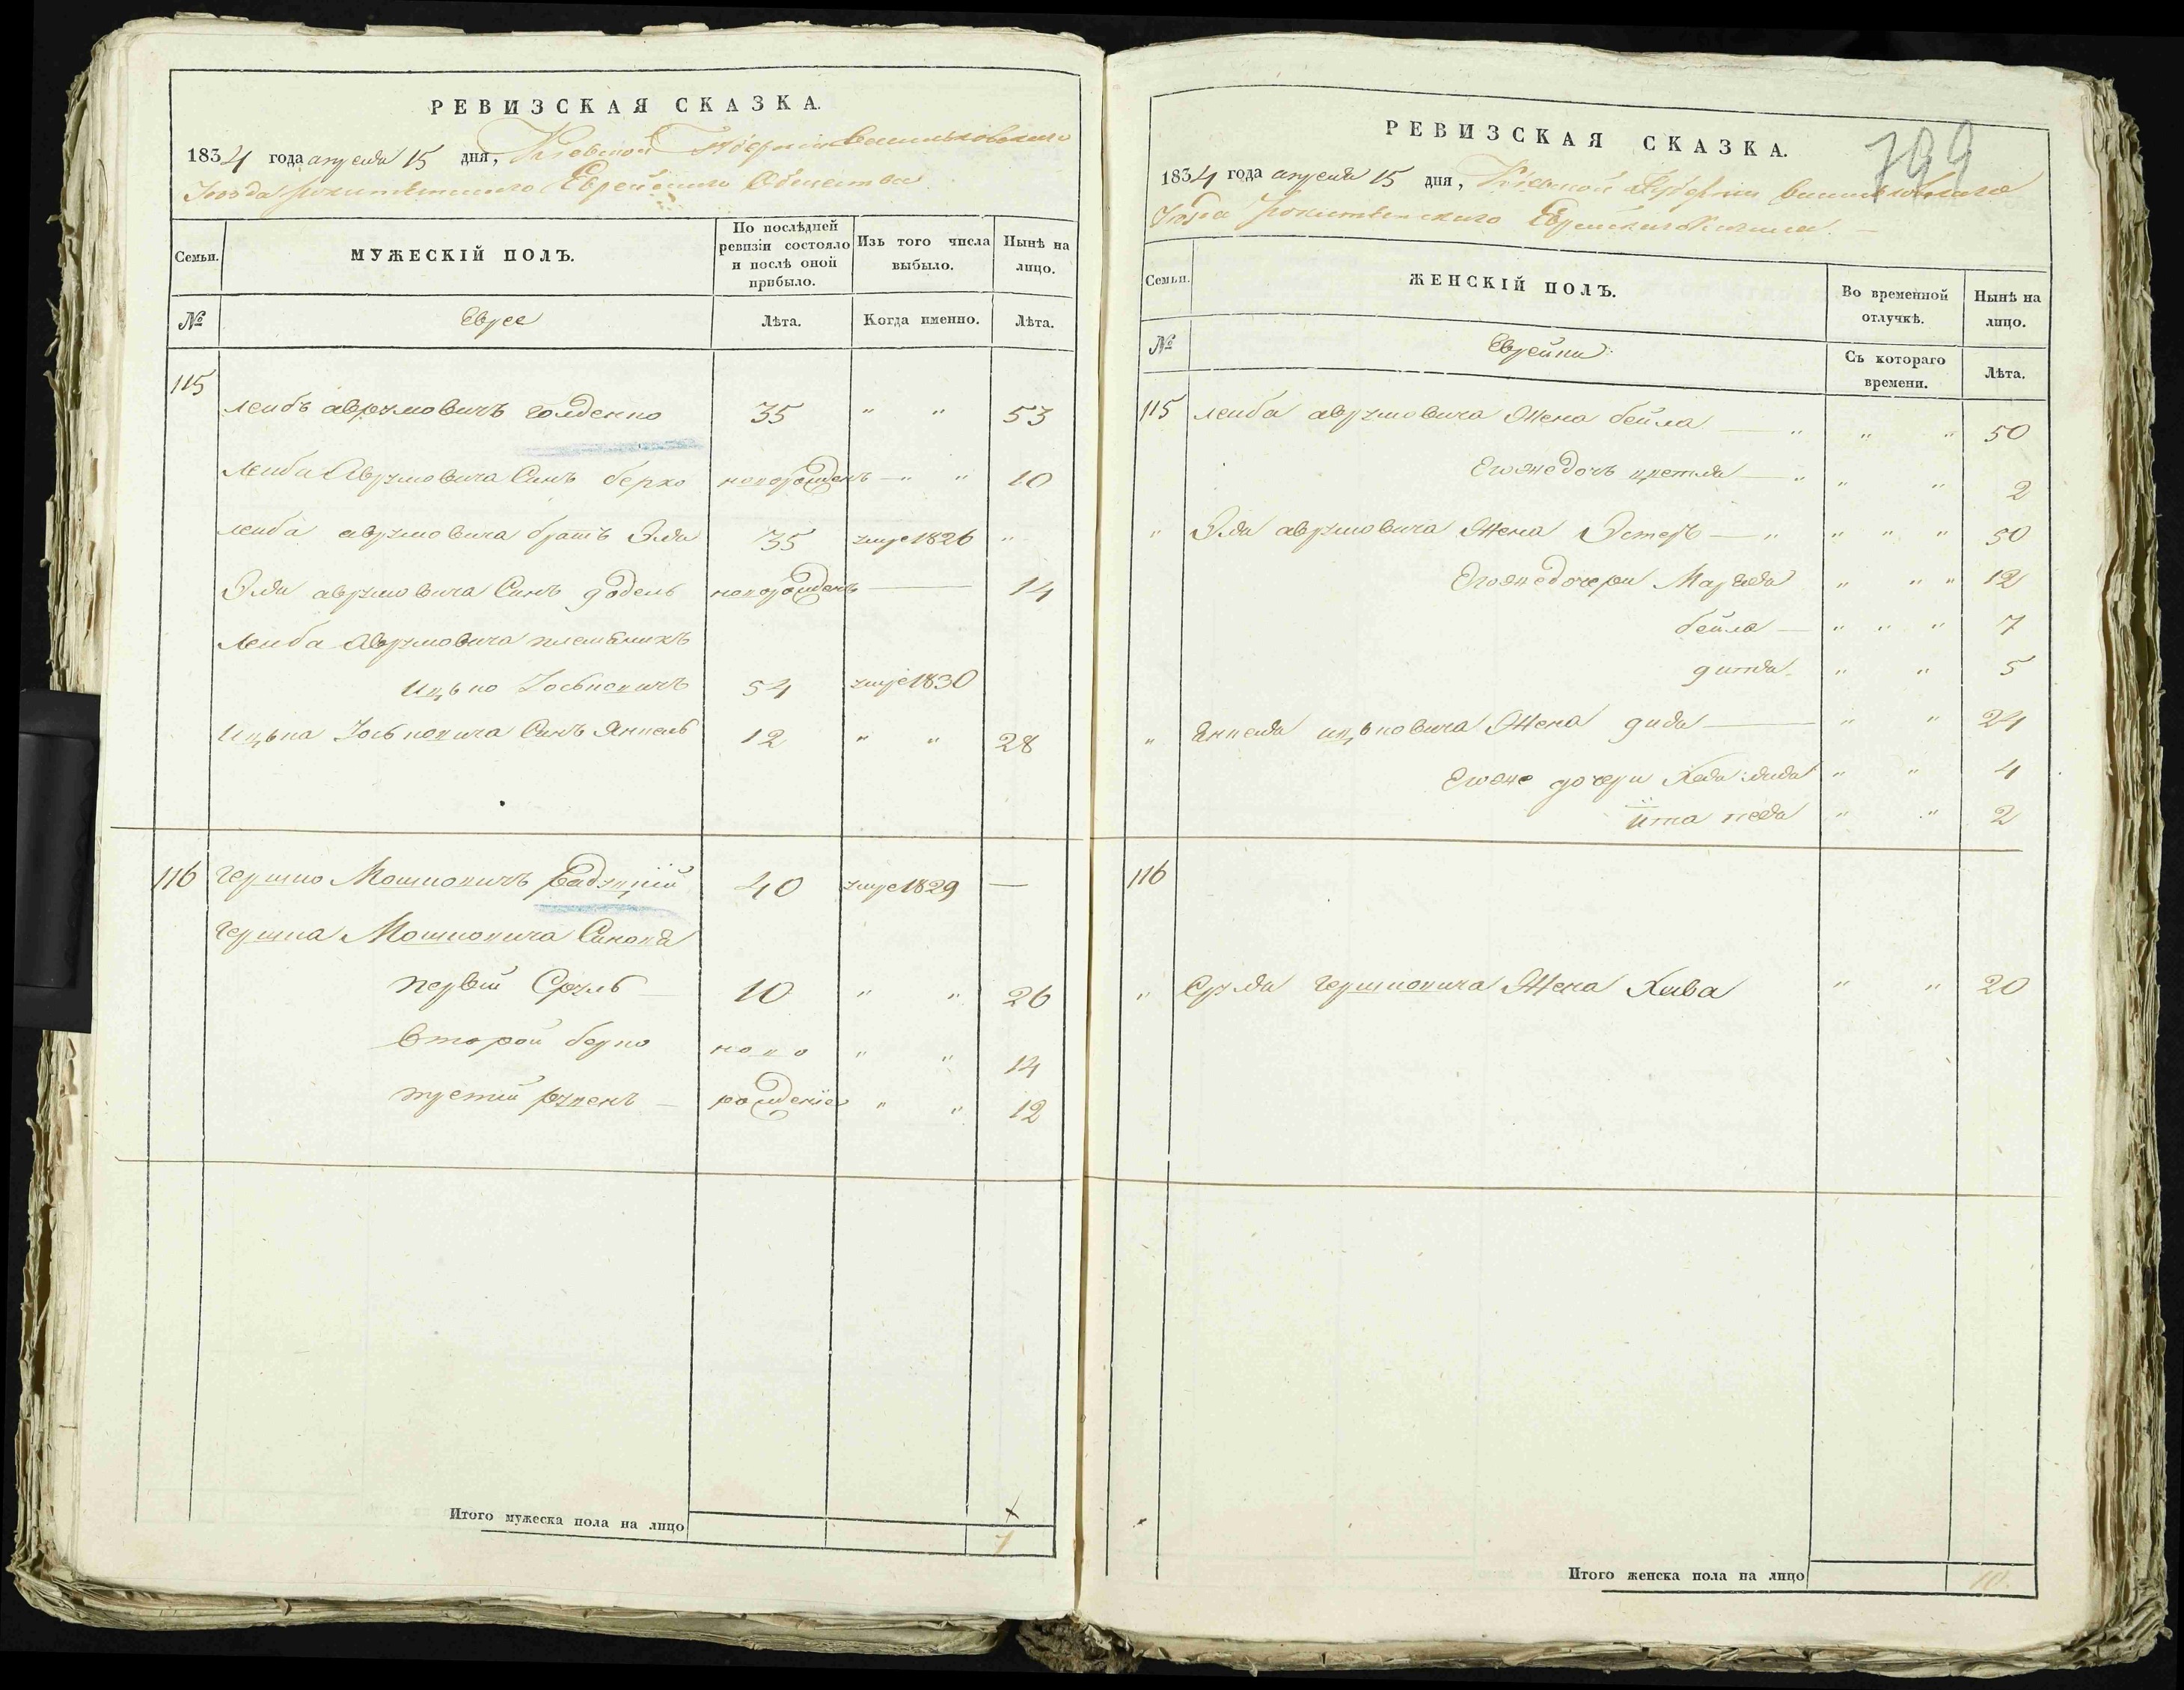 РЕВИЗСКАЯ СКАЗКА.
1834 года апреля 15 дня, Кіевской Губерніи Васильковского
Уезда рокитянского Еврейского Общества
Семьи.
МУЖЕСКІЙ ПОЛЪ.
По послѣдней ревизіи состояло и послѣ оной прибыло.
Изъ того числа выбыло.
Нынѣ на лицо.
№
Евреи
Лѣта.
Когда именно.
Лѣта.
115
леибъ аврумовичъ голденко 35 " " 53
Леиба Аврумовича Синъ берко новорожденъ — " " 10
леиба аврумовича братъ Эля 35 умре 1826 "
Эля аврумовича Синъ додель новорожденъ — 14
Леиба Аврумовича племеникъ
Ицько Iосьповичъ 54 умре 1830
Ицька Iосьповича Синъ Янкель 12 " " 28
116 Гершко Мошковичъ радуцкій 40 умре 1829 —
Гершка Мошковича Синовя
первий Сруль — 10 " " 26
Второй берко ново " " 14
третий рувенъ — рожденіе " " 12
Итого мужеска пола на лицо 7
799
РЕВИЗСКАЯ СКАЗКА.
1834 года апреля 15 дня, Кіевской Губерніи Васильковского
Уезда рокитянского Еврейского
Семьи.
ЖЕНСКІЙ ПОЛЪ.
Во временной отлучкѣ.
Нынѣ на лицо.
№
Еврейки
Съ котораго времени.
Лѣта.
115 леиба аврумовича Жена бейла — " " " 50
Егоже дочъ — " " " 2
" Эля аврумовича Жена Эстеръ — " " " " 50
Егоже дочери Марголя " " " 12
бейла — " " " 7
гитля " " 5
" Янкеля ицьковича Жена — " " 24
Егоже дочери " " 4
ита " " 2
116
" Сруля Гершковича Жена Хива " " 20
Итого женска пола на лицо 10.